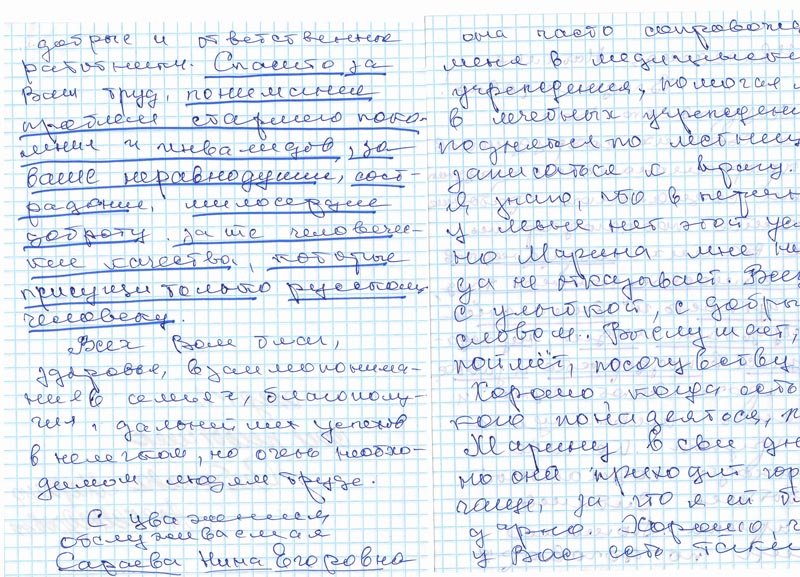 добрые и ответственные
работники. Спасибо за
Ваш труд, понимание
проблем старшего поко-
ления и инвалидов, за
ваше неравнодушие, сост-
радание, милосердие
доброту. За те человечес-
кие качества, которые
присущи только русскому
человеку.
Всех Вам благ,
здоровья, взаимопонима-
ния в семьях, благополу-
чия, дальнейших успехов
в нелегком, но очень необхо-
димом людям труде.
С уважением,
обслуживаемая
Сараева Нина Егоровна
она часто сопровожд
меня в медицинские
учреждения, помогая
в лечебных учрежден
подняться по лестниц
записаться к врачу.
Я знаю, что в перечн
у меня нет этой усл
но Марина мне ни
да не отказывает. Всег
с улыбкой, с добры
словом. Выслушает,
поймёт, посочувству
Хорошо, когда есть
кого понадеяться,
Марину в свои дн
но она приходит гор
чаще, за что я ей бл
дарна. Хорошо,
у Вас есть таки